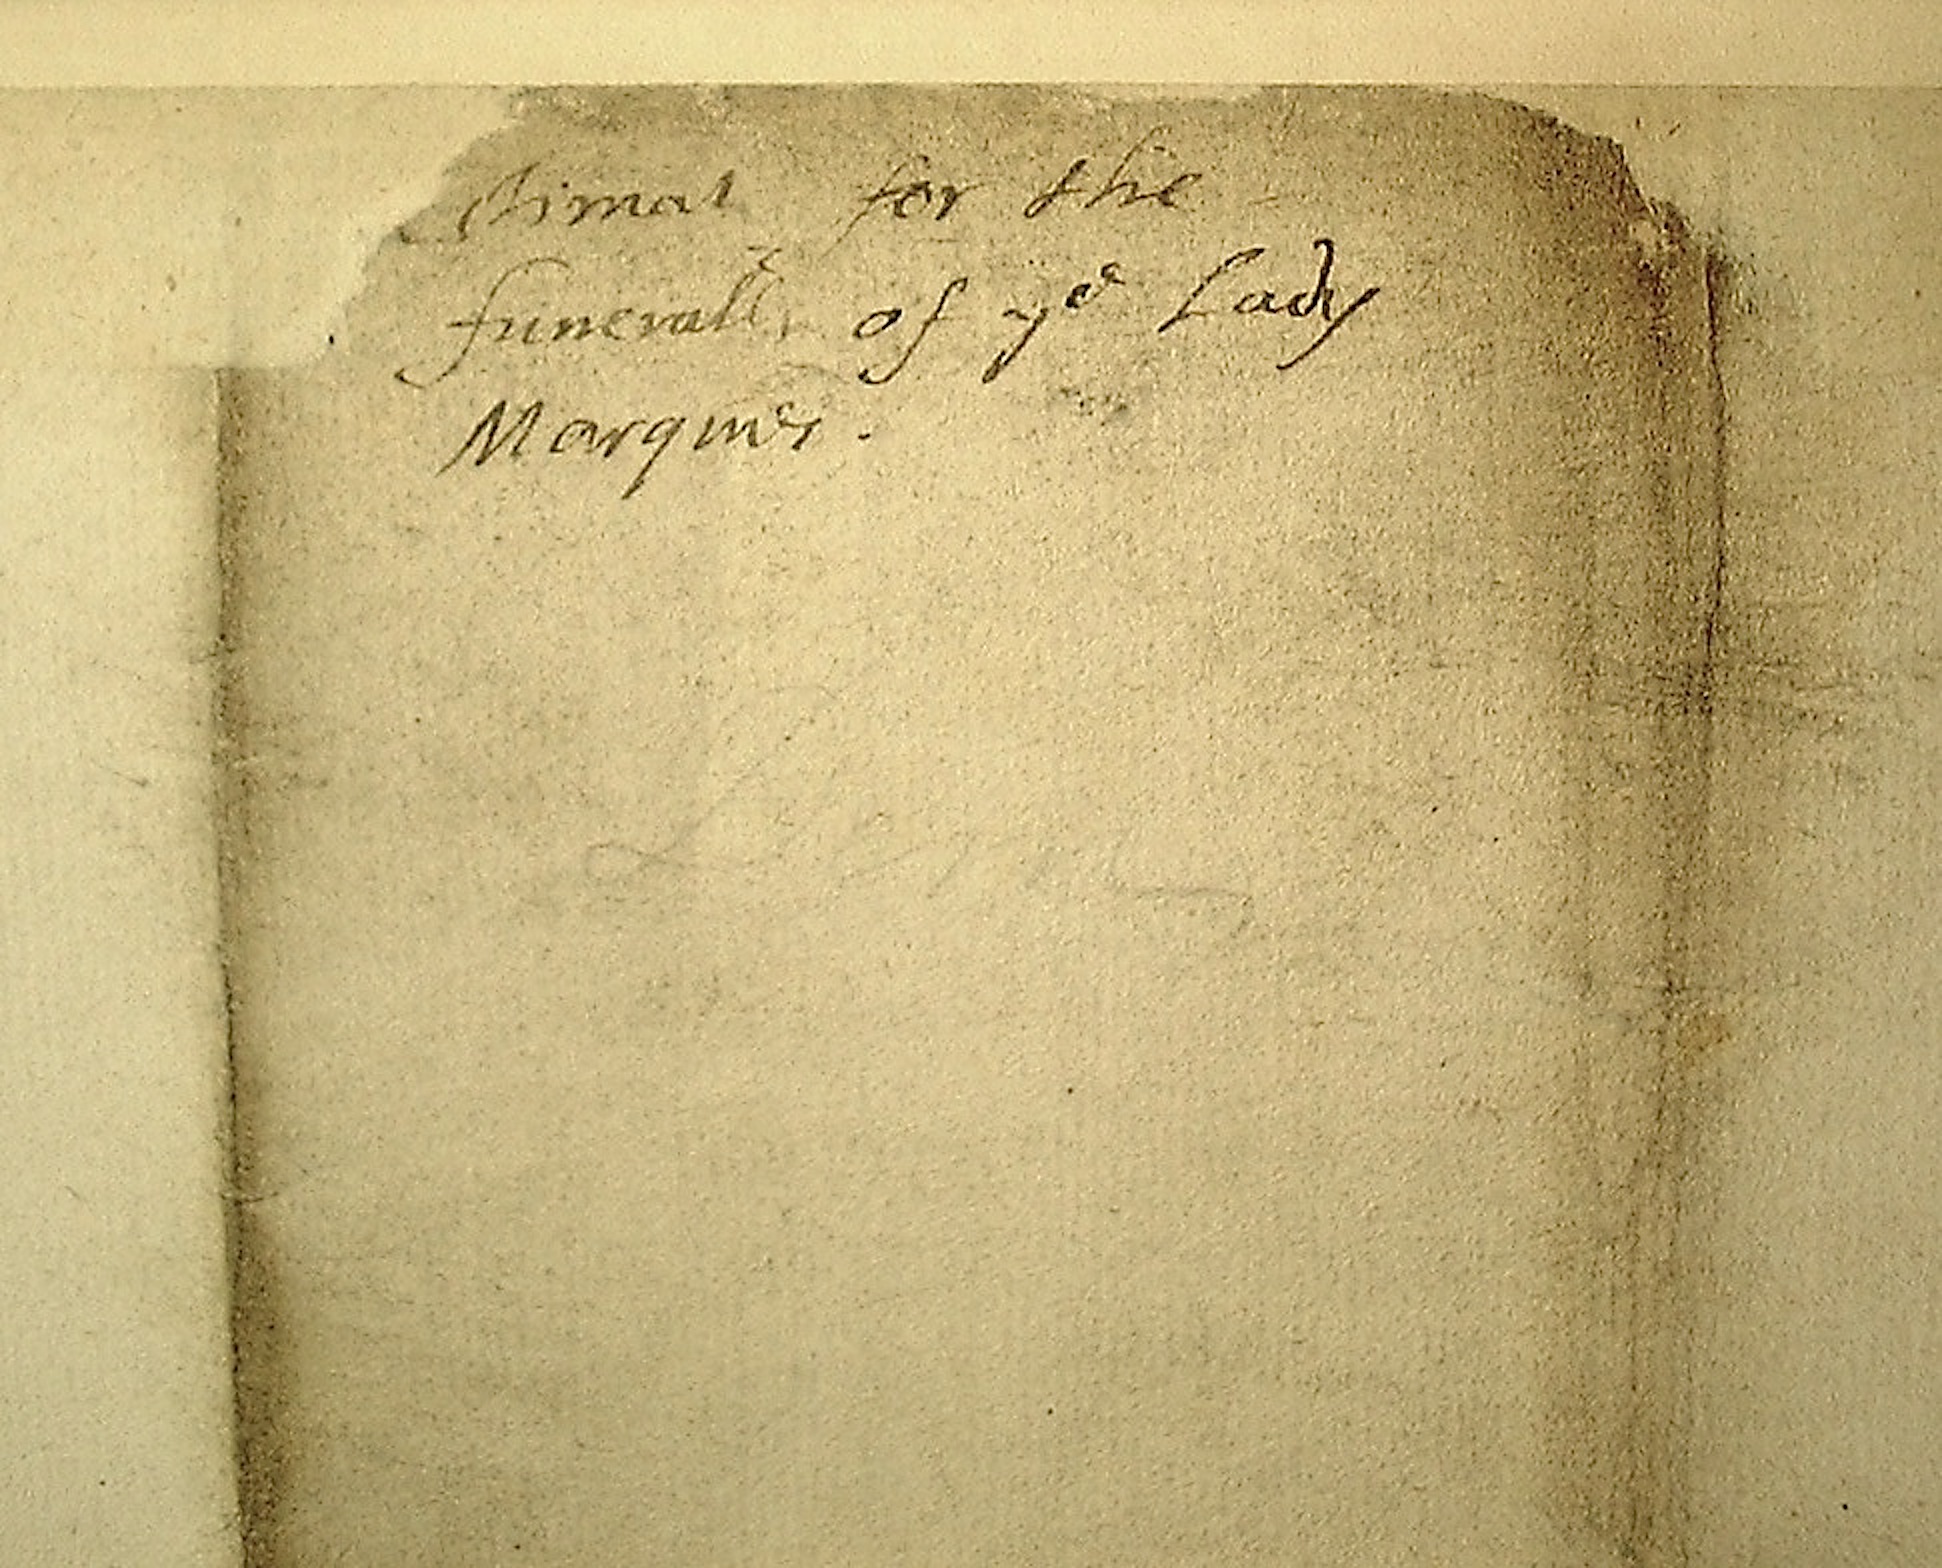 stimat for the
funerall of yᵉ Lady
Marques.